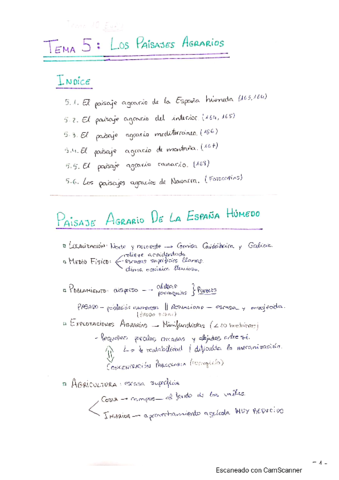 TEMA 5: LOS PAISAJES AGRARIOS
INDICE
5.1. El paisaje agrario de la España húmeda (163, 164)
5.2. El paisaje agrario del interior (164, 165)
5.3. El paisaje agrario mediterráneo (166)
5.4. El paisaje agrario de montaña. (167)
5.5. El paisaje agrario canario. (168)
5.6. Los paisajes agrarios de Navarra. (Fotocopias)
PAISAJE AGRARIO DE LA ESPAÑA HÚMEDO
LOCALIZACIÓN: Norte y noroeste → Cornisa Cantábrica y Galicia.
MEDIO FÍSICO: relieve accidentado
escasas superficies llanas.
clima oceánico lluvioso.
POBLAMIENTO: disperso -- aldeas
parroquias
PASADO - población numerosa || ACTUALIDAD - escasa y envejecida.
EXPLOTACIONES AGRARIAS → Minifundistas (<10 hectáreas)
- Pequeñas parcelas cercadas y alejadas entre sí.
↳ ↓ rentabilidad / dificulta la mecanización.
CONCENTRACIÓN PARCELARIA
AGRICULTURA - escasa superficie
COSTA → campos - al fondo de los valles
INTERIOR - aprovechamiento agrícola MUY REDUCIDO
- 1 -
Escaneado con CamScanner